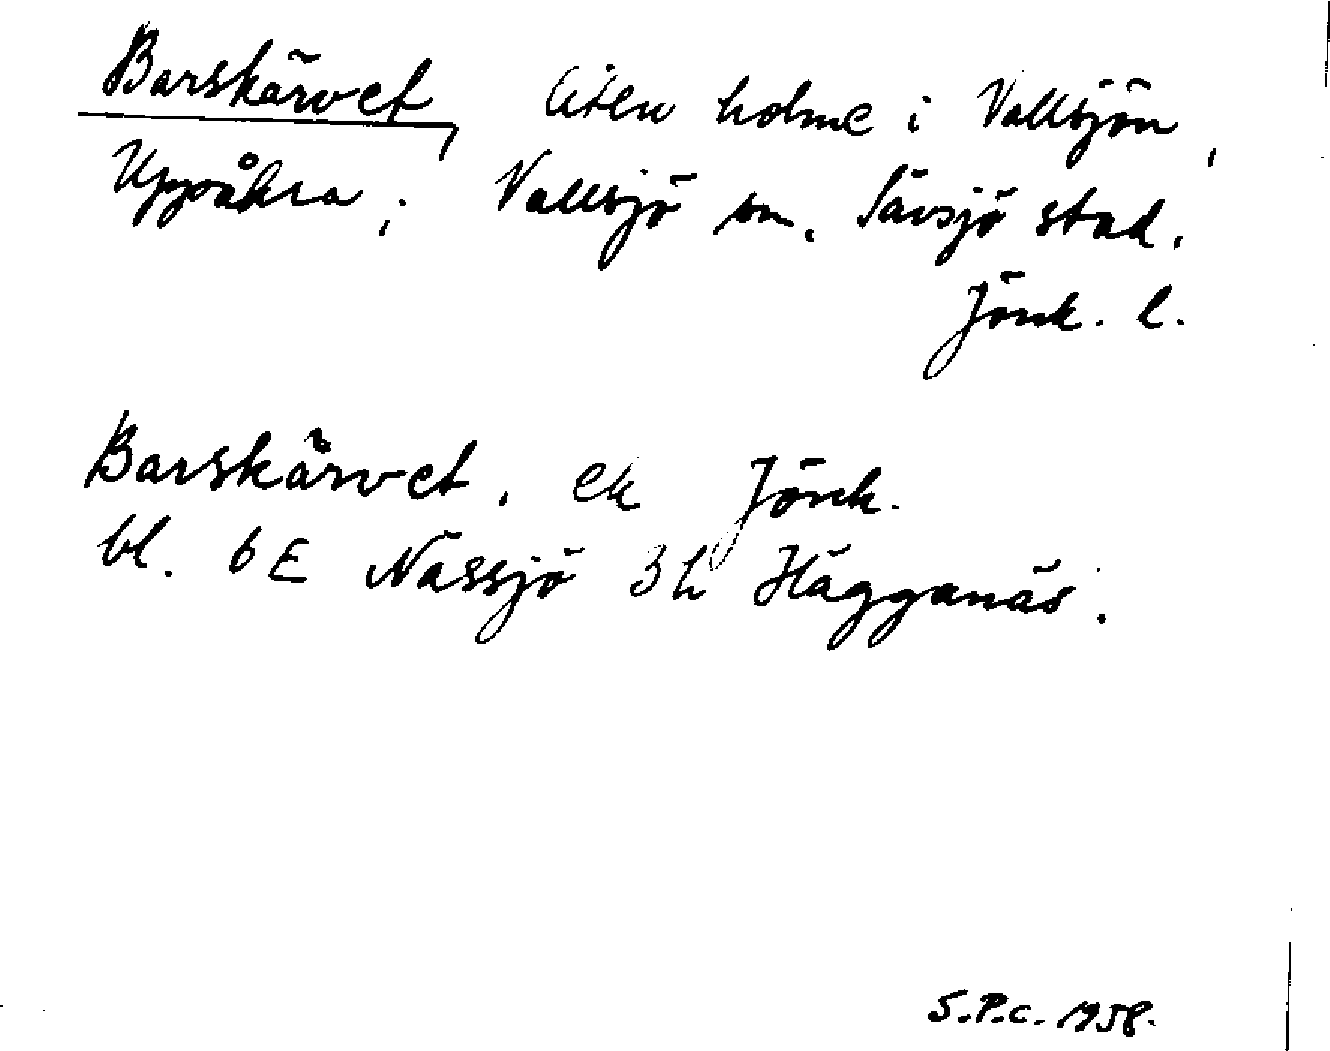 Barskärvet, liten holme i Vallsjön,
Uppåkra, Vallsjö sn. Sävsjö stad,
Jönk. l.
Barskärvet, ek Jönk.
bl. 6 E Nässjö 3 h Hägganäs.
S.P.C. 1958.